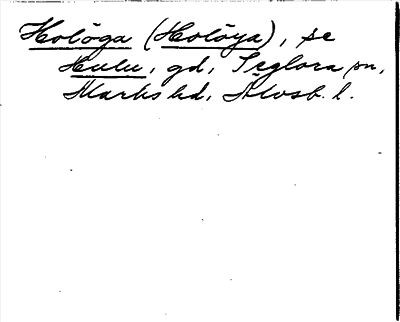 Holöga (Holöya), se
Hulu, gd, Seglora sn,
Marks hd, Älvsb. l.